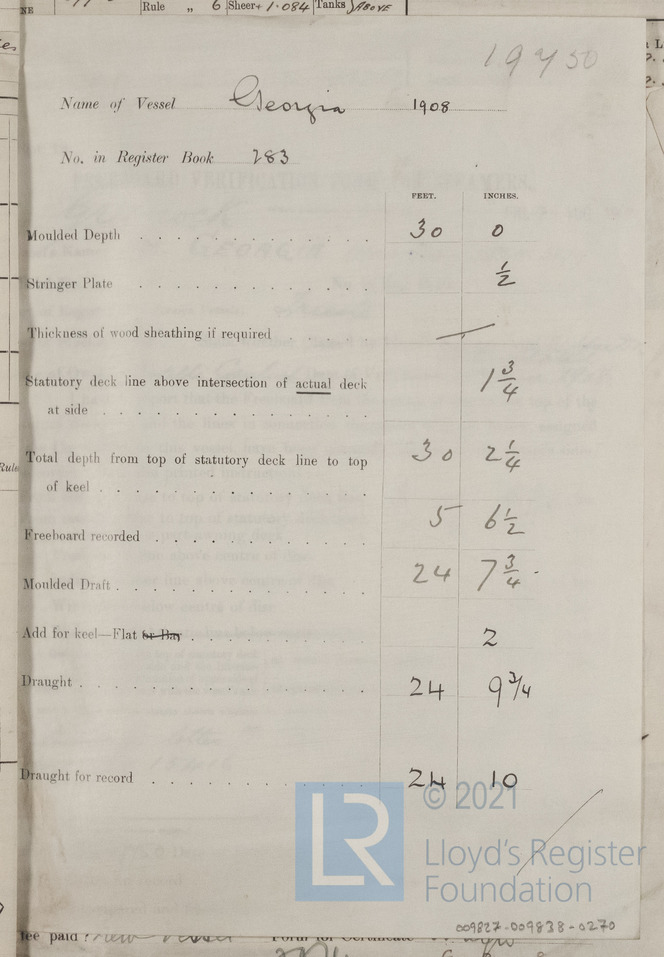 Rule „ 6 Sheer + 1·084 Tanks Above
19750
Name of Vessel Georgia 1908
No. in Register Book 283
FEET. INCHES.
Moulded Depth 30 0
Stringer Plate ½
Thickness of wood sheathing if required —
Statutory deck line above intersection of actual deck 1¾
at side
Total depth from top of statutory deck line to top 30 2¼
of keel
Freeboard recorded 5 6½
Moulded Draft 24 7¾
Add for keel—Flat or Bar 2
Draught 24 9¾
Draught for record 24 10
© 2021
LR
Lloyd's Register
Foundation
009827-009838-0270